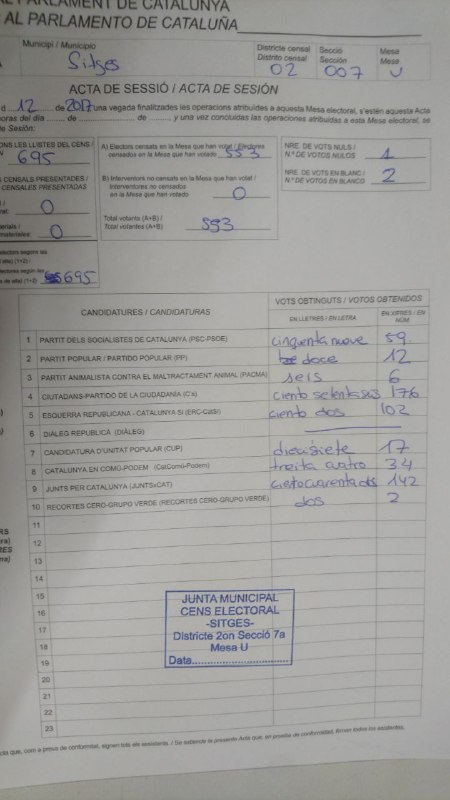 AL PARLAMENT DE CATALUNYA
AL PARLAMENTO DE CATALUÑA
Municipi / Municipio
Sitges
Districte censal
Distrito censal
02
Secció
Sección
007
Mesa
Mesa
U
ACTA DE SESSIÓ / ACTA DE SESIÓN
d 12 de 2017 una vegada finalitzades les operacions atribuïdes a aquesta Mesa electoral, s'estén aquesta Acta
horas del día de de y una vez concluidas las operaciones atribuidas a esta Mesa electoral, se
de Sesión:
ONS LES LLISTES DEL CENS /
695
CENSALS PRESENTADES /
CENSALES PRESENTADAS
0
0
electors segons les
electores según las
de alta) (1+2) 695
A) Electors censats en la Mesa que han votat / Electores
censados en la Mesa que han votado 553
B) Interventors no censats en la Mesa que han votat /
Interventores no censados
en la Mesa que han votado 0
Total votants (A+B) /
Total votantes (A+B) 553
NRE. DE VOTS NULS /
N.º DE VOTOS NULOS 1
NRE. DE VOTS EN BLANC /
N.º DE VOTOS EN BLANCO 2
CANDIDATURES / CANDIDATURAS
VOTS OBTINGUTS / VOTOS OBTENIDOS
EN LLETRES / EN LETRA
EN XIFRES / EN NÚM
1 PARTIT DELS SOCIALISTES DE CATALUNYA (PSC-PSOE) cinquenta nueve 59
2 PARTIT POPULAR / PARTIDO POPULAR (PP) doce 12
3 PARTIT ANIMALISTA CONTRA EL MALTRACTAMENT ANIMAL (PACMA) seis 6
4 CIUTADANS-PARTIDO DE LA CIUDADANÍA (C's) ciento setentaseis 176
5 ESQUERRA REPUBLICANA - CATALUNYA SÍ (ERC-CatSí) ciento dos 102
6 DIÀLEG REPUBLICÀ (DIÀLEG)
7 CANDIDATURA D'UNITAT POPULAR (CUP) diecisiete 17
8 CATALUNYA EN COMÚ-PODEM (CatComú-Podem) treita cuatro 34
9 JUNTS PER CATALUNYA (JUNTSxCAT) ciento cuarenta dos 142
10 RECORTES CERO-GRUPO VERDE (RECORTES CERO-GRUPO VERDE) dos 2
11
12
13
14
15
16
17
18
19
20
21
22
23
JUNTA MUNICIPAL
CENS ELECTORAL
-SITGES-
Districte 2on Secció 7a
Mesa U
Data
acta que, com a prova de conformitat, signen tots els assistents. / Se extiende la presente Acta que, en prueba de conformidad, firman todos los asistentes.